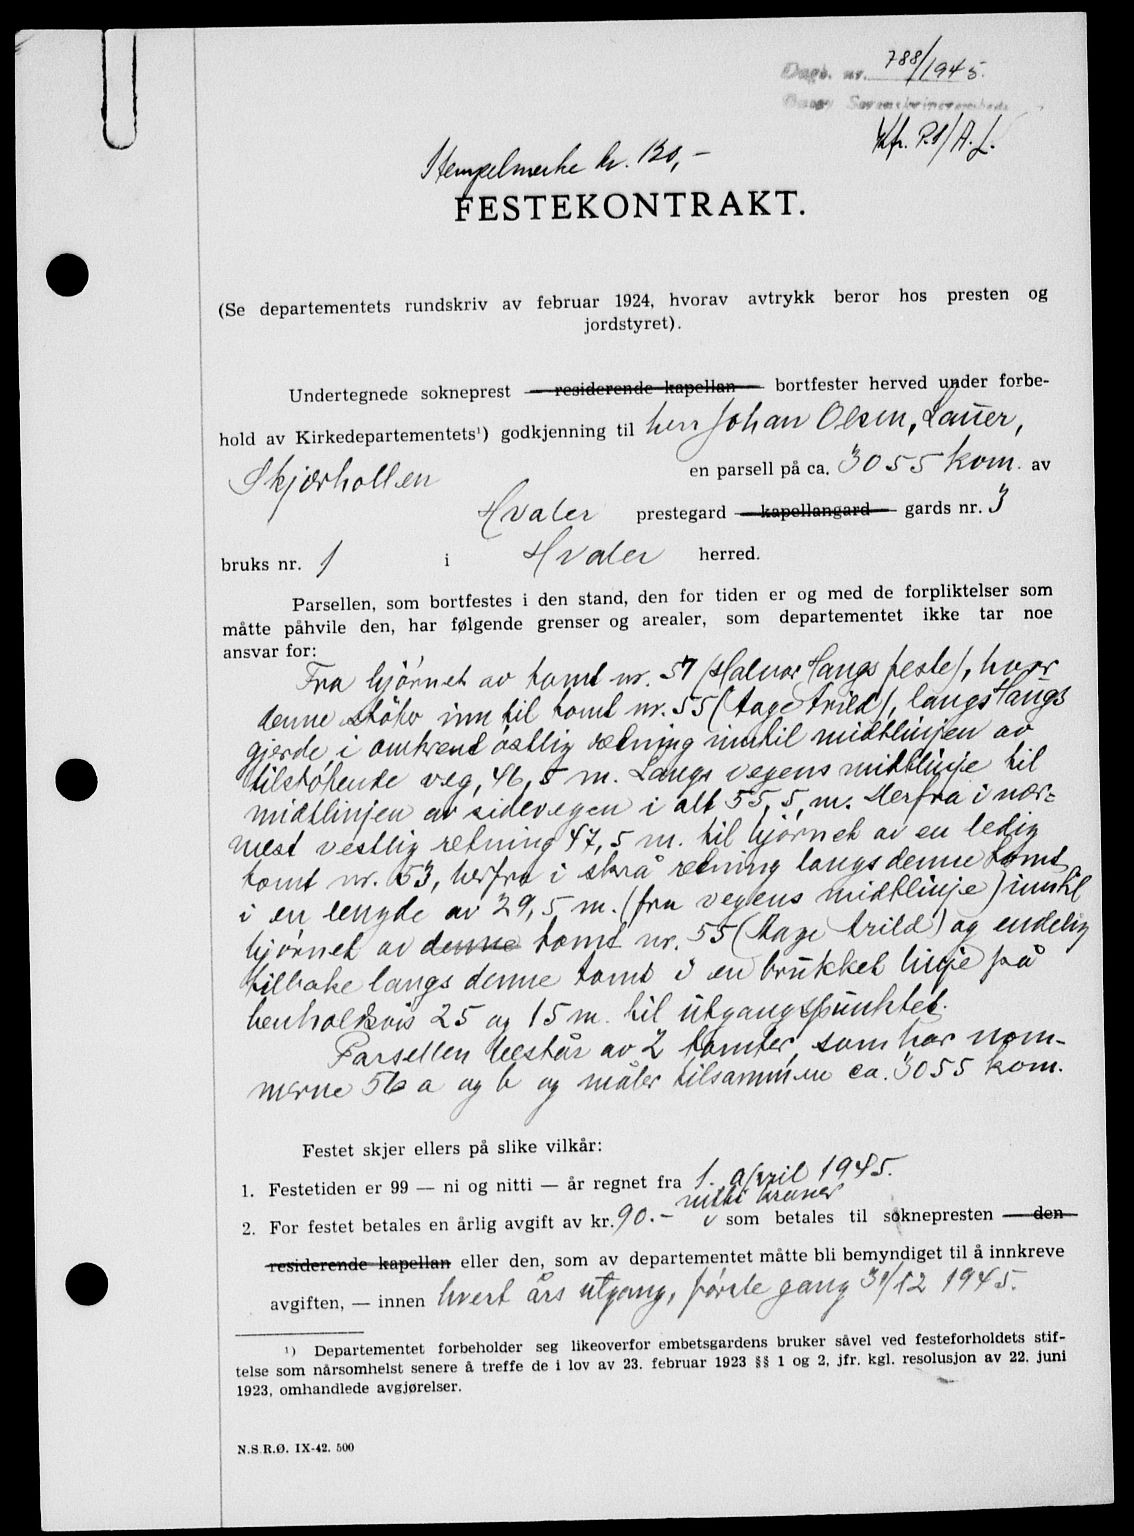 Dagb. nr. 788/1945.
Sorenskriverembede
Stempelmerke kr. 120,-
FESTEKONTRAKT.
(Se departementets rundskriv av februar 1924, hvorav avtrykk beror hos presten og
jordstyret).
Undertegnede sokneprest residerende kapellan bortfester herved under forbe-
hold av Kirkedepartementets¹) godkjenning til herr Johan Olsen, Lauer,
Skjærhollen en parsell på ca. 3055 kvm. av
Hvaler prestegard kapellangard gards nr. 3
bruks nr. 1 i Hvaler herred.
Parsellen, som bortfestes i den stand, den for tiden er og med de forpliktelser som
måtte påhvile den, har følgende grenser og arealer, som departementet ikke tar noe
ansvar for:
Fra hjørnet av tomt nr. 57 (Halvor Haugs feste), hvor
denne støter inn til tomt nr. 55 (Aage Arild), langs Haugs
gjerde i omkrent østlig retning inntil midtlinjen av
tilstøtende veg, 46,5 m. Langs vegens midtlinje til
midtlinjen av sidevegen i alt 55,5, m. Derfra i nær-
mest vestlig retning 47,5 m. til hjørnet av en ledig
tomt nr. 53, herfra i skrå retning langs denne tomt
i en lengde av 29,5 m. (fra vegens midtlinje) inntil
hjørnet av denne tomt nr. 55 (Aage Arild) og endelig
tilbake langs denne tomt i en brukket linje på
henholdsvis 25 og 15 m. til utgangspunktet.
Parsellen består av 2 tomter, som har nom-
merne 56 a og b og måler tilsammen ca. 3055 kvm.
Festet skjer ellers på slike vilkår:
1. Festetiden er 99 — ni og nitti — år regnet fra 1. april 1945.
nitti kroner
2. For festet betales en årlig avgift av kr. 90.- v som betales til soknepresten — den
residerende kapellan eller den, som av departementet måtte bli bemyndiget til å innkreve
avgiften, — innen hvert års utgang, første gang 31/12 1945.
¹) Departementet forbeholder seg likeoverfor embetsgardens bruker såvel ved festeforholdets stif-
telse som nårsomhelst senere å treffe de i lov av 23. februar 1923 §§ 1 og 2, jfr. kgl. resolusjon av 22. juni
1923, omhandlede avgjørelser.
N.S.R.Ø. IX-42. 500